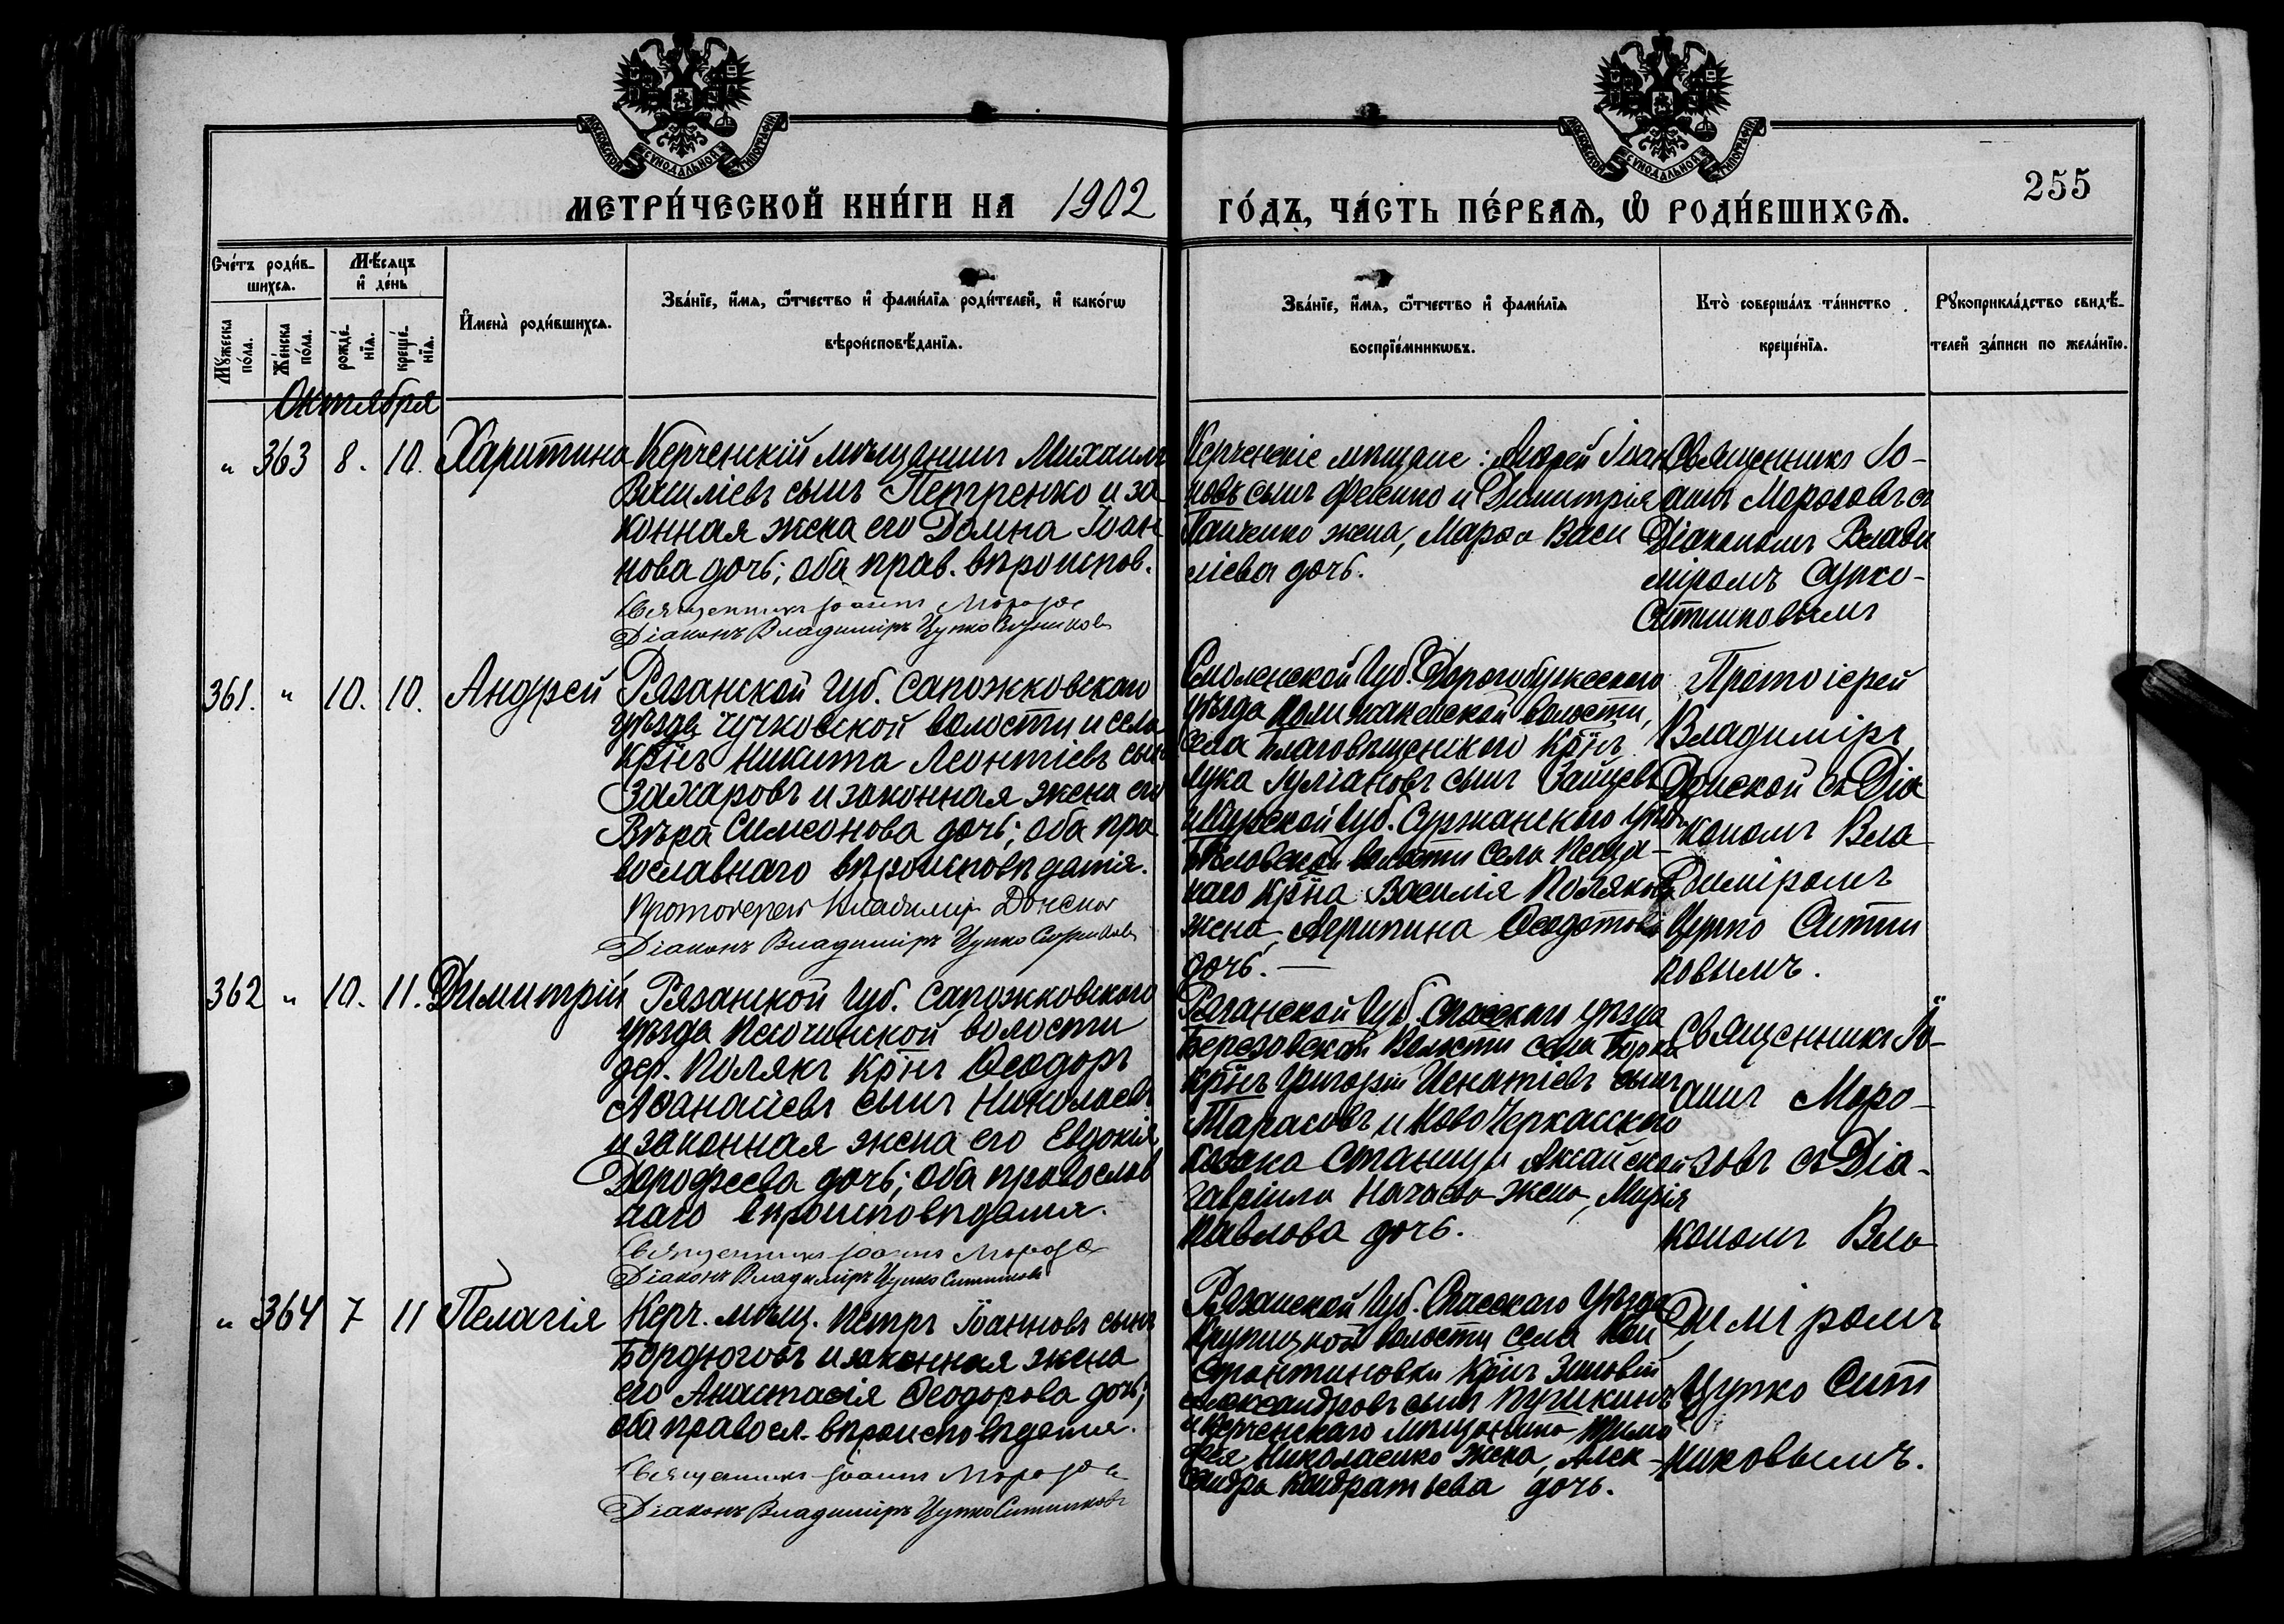 МОСКОВСКОЙ СѴНОДАЛЬНОЙ ТИПОГРАФІИ
МОСКОВСКОЙ СѴНОДАЛЬНОЙ ТИПОГРАФІИ
МЕТРИ́ЧЕСКОЙ КНИ́ГИ НА 1902
ГО́ДЪ, ЧА́СТЬ ПЕ́РВАѦ, Ѽ РОДИ́ВШИХСѦ.
255
Сче́тъ роди́в-
шихсѧ.
Мѣ́сѧцъ
и҆ де́нь
Мꙋ́жеска
по́ла.
Же́нска
по́ла.
рожде́-
нїѧ.
креще́-
нїѧ.
И҆мена̀ роди́вшихсѧ.
Зва́нїе, и҆́мѧ, ѻ҆́тчество и҆ фами́лїѧ роди́телей, и҆ како́гѡ
вѣроисповѣ́данїѧ.
Зва́нїе, и҆́мѧ, ѻ҆́тчество и҆ фами́лїѧ
воспрїе́мникѡвъ.
Кто̀ соверша́лъ та́инство
креще́нїѧ.
Рꙋкоприкла́дство свидѣ́-
телей за́писи по жела́нїю.
Октября
" 363 8. 10. Харитина
Керченскій мѣщанинъ Михаилъ
Василіевъ сынъ Петренко и за
конная жена его Домна Іоан
нова дочь; оба прав. вѣроиспов.
Священникъ Іоаннъ Морозовъ
Діаконъ Владиміръ Цупко Ситниковъ
Керченскіе мѣщане: Андрей Іоан
новъ сынъ Фесенко и Димитрія
Панченко жена, Марѳа Васи
ліева дочь.
Священникъ Іо-
аннъ Морозовъ съ
Діакономъ Влади
міромъ Цупко-
Ситниковымъ
361. " 10. 10. Андрей
Рязанской Губ. Сапожковскаго
уѣзда Чучковской волости и села
Кр̃нъ Никита Леонтіевъ сынъ
Захаровъ и законная жена его
Вѣра Симеонова дочь; оба пра
вославнаго вѣроисповѣданія.
Протоіерей Владиміръ Донской
Діаконъ Владиміръ Цупко Ситниковъ
Смоленской Губ. Дорогобужскаго
уѣзда волости,
села Благовѣщенскаго Кр̃нъ
Лука Іуліановъ сынъ Зайцевъ
и Курской Губ. Суджанскаго уѣз.
Бѣловской волости села
Кр̃на Василія Полякова
жена, Агрипина Ѳеодотова
дочь. —
Протоіерей
Владиміръ
Донской съ Діа
кономъ Вла
диміромъ
Цупко Ситни
ковымъ.
362 " 10. 11. Димитрій
Рязанской Губ. Сапожковскаго
уѣзда Песочинской волости
дер. Полякъ Кр̃нъ Ѳеодоръ
Аѳанасіевъ сынъ Николаевъ
и законная жена его Евдокія
Дорофеева дочь; оба православ
наго вѣроисповѣданія.
Священникъ Іоаннъ Морозовъ
Діаконъ Владиміръ Цупко Ситниковъ
Рязанской Губ. Спасскаго уѣзда
Березовской Волости села Борки
Кр̃нъ Григорій Игнатіевъ сынъ
Тарасовъ и Ново Черкасскаго
козака Станицы Аксайской
Гавріила жена, Марія
Павлова дочь.
Священникъ Іо-
аннъ Моро-
зовъ съ Діа-
кономъ Вла
диміромъ
Цупко Сит
никовымъ.
" 364 7 11 Пелагія
Керч. мѣщ. Петръ Іоанновъ сынъ
Бордюговъ и законная жена
его Анастасія Ѳеодорова дочь;
оба правосл. вѣроисповѣданія.
Священникъ Іоаннъ Морозовъ
Діаконъ Владиміръ Цупко Ситниковъ
Рязанской Губ. Спасскаго Уѣзда
волости села Кон
стантиновки Кр̃нъ Зиновій
Александровъ сынъ Пушкинъ
и Керченскаго мѣщанина Тимо
фея Николаенко жена, Алек-
сандра Кондратьева дочь.